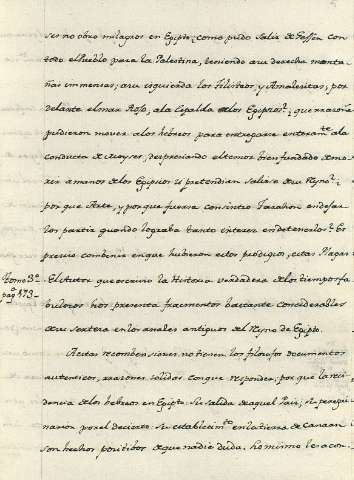 ses no obro milagros en Egipto; como pudo salir de Gessen con
todo el Pueblo para la Palestina, teniendo a su derecha monta-
ñas inmensas; a su izquierda los Filisteos, y Amalecitas; por
delante el mar Roxo, a la espalda de los Egipcios; que razon
pudieron mover a los hebreos para entregarse enteramte. a la
conducta de Moyses, despreciando el temor bien fundado de mo-
rir a manos de los Egipcios si pretendian salirse de su Reyno:
por que Arte, y por que fuerza consintio Farahon en dexar-
los partir quando lograba tanto interes en detenerlos. Es
preciso combinir en que hubieron estos prodigios, estas Plagas
El Autor que escrivio la Historia verdadera de los tiempos fa-
Tomo 3º
pagª 173-
bulosos nos presenta fracmentos bastante considerables
de su en los anales antiguos del Reyno de Egipto.
A estas recombenciones no tienen los filosofos documentos
autenticos, razones solidas con que responder, por que la resi-
dencia de los hebreos en Egipto: su salida de aquel Pais; su peregri-
nacion por el decierto: su establecimto. en la tierra de Canaan
son hechos positibos de que nadie duda. lo mismo les acon-